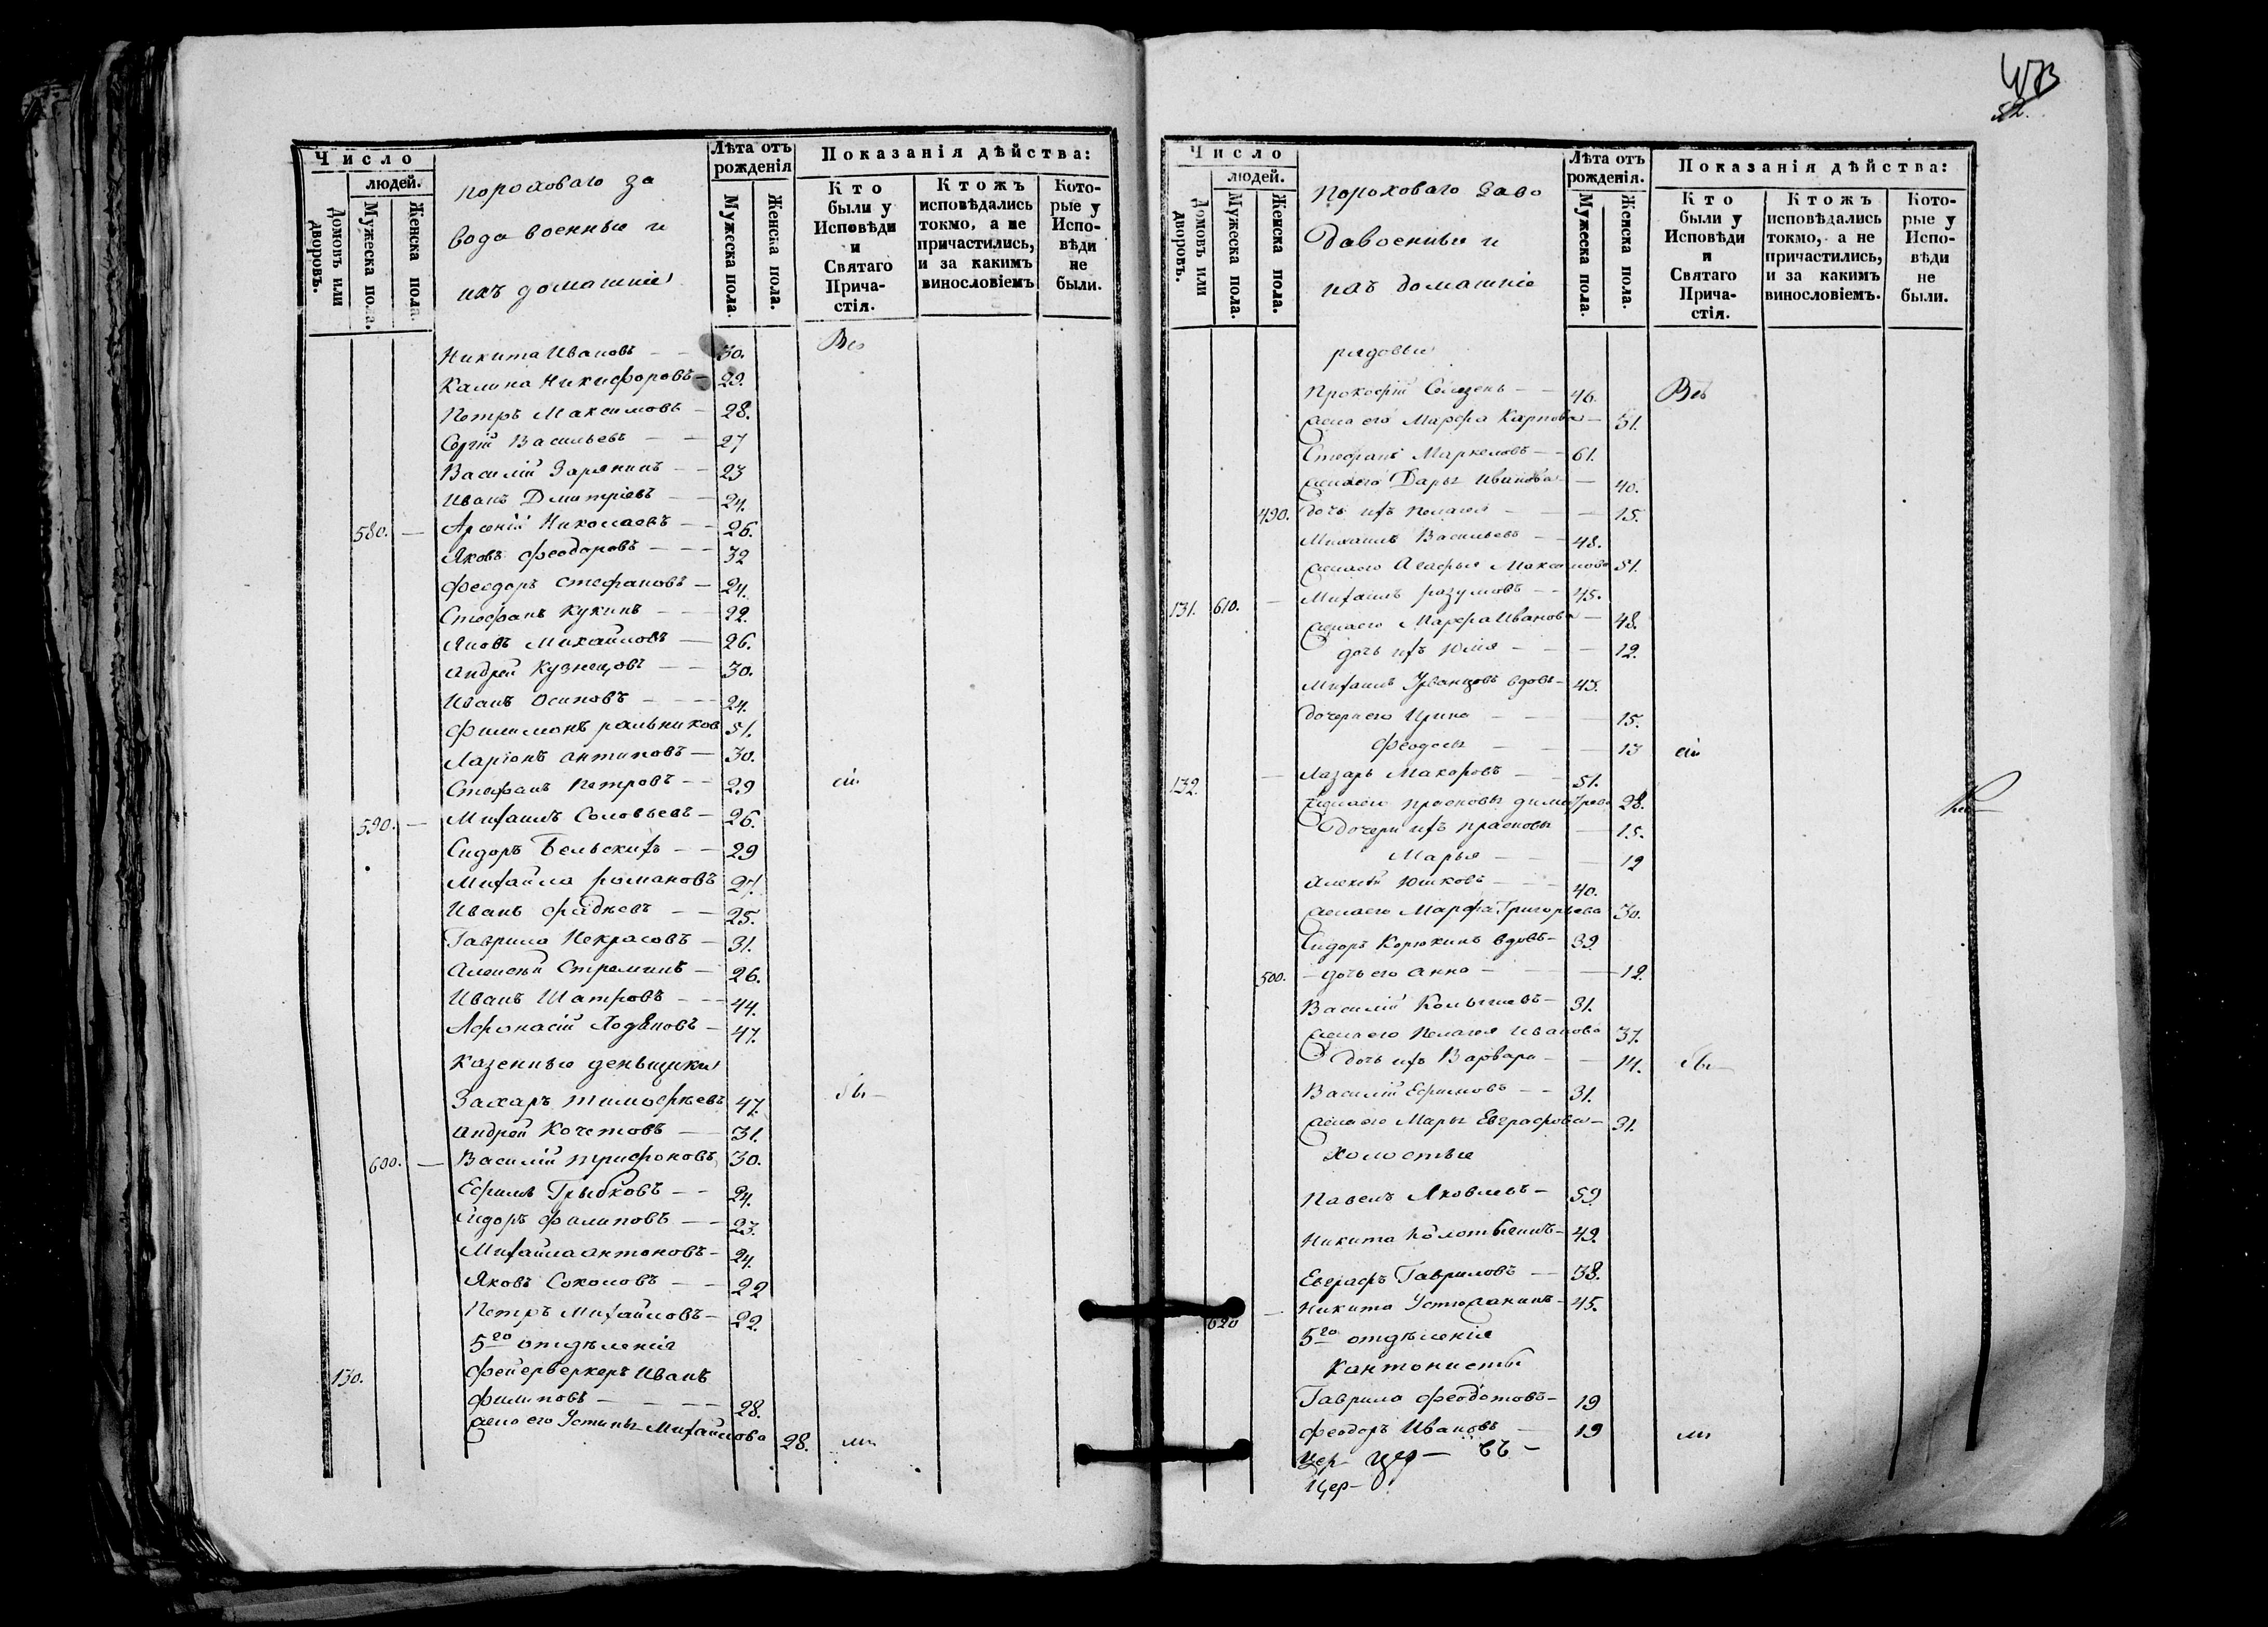 Число
людей.
Домовъ или дворовъ.
Мужеска пола.
Женска пола.
пороховаго за
вода военные и
ихъ домашніе
Лѣта отъ рожденія
Мужеска пола.
Женска пола.
Показанія дѣйства:
Кто были у Исповѣди и Святаго Причастія.
Ктожъ исповѣдались токмо, а не причастились, и за какимъ винословіемъ
Которые у Исповѣди не были.
Никита Ивановъ — 30. Всѣ
Калина Никифоровъ — 29.
Петръ Максимовъ — 28.
Сергій Васильевъ — 27
Василій Зарянинъ — 23
Иванъ Дмитріевъ — 24.
580. — Арсеній Николаевъ — 26.
Яковъ Феодоровъ — 32
Феодоръ Стефановъ — 24.
Стефанъ Кукинъ — 22.
Яковъ Михайловъ — 26.
Андрей Кузнецовъ — 30.
Иванъ Осиповъ — 24.
Филимонъ 51.
Ларіонъ Антиповъ — 30.
Стефанъ Петровъ — 29 сіи
590. — Михаилъ Соловьевъ — 26.
Сидоръ Бельскихъ — 29
Михайла Романовъ 27.
Иванъ Фадѣевъ — 25.
Гаврила Некрасовъ — 31.
Алексѣй — 26.
Иванъ Шатровъ — 44.
Афонасій — 47.
Казенные деньщики
Захаръ Тимофѣевъ 47. бы —
Андрей Кочетовъ — 31.
600. — Василій Трифоновъ 30.
Ефимъ Грыбковъ — 24.
Сидоръ Филиповъ — 23.
Михайла Антоновъ — 24.
Яковъ Соколовъ — 22
Петръ Михайловъ — 22.
5го отдѣленія
130. Фейерверкеръ Иванъ
Филиповъ — 28.
жена его Устинья Михайлова 28. ли
52.
Число
людей.
Домовъ или дворовъ.
Мужеска пола.
Женска пола.
Пороховаго заво
да военные и
ихъ домашніе
Лѣта отъ рожденія.
Мужеска пола.
Женска пола.
Показанія дѣйства:
Кто были у Исповѣди и Святаго Причастія.
Ктожъ исповѣдались токмо, а не причастились, и за какимъ винословіемъ.
Которые у Исповѣди не были.
рядовые
Прокофій Селезень — 46. Всѣ
жена его Марфа Карпова — 51.
Стефанъ Маркеловъ — 61.
жена его Дарья Иванова — 40.
490. дочь ихъ Пелагея — 15.
Михаилъ Васильевъ — 48.
жена его Агафья Максимова 51.
131. 610. — Михаилъ Разумовъ — 45.
жена его Марфа Иванова — 48.
дочь ихъ Юлія — 12.
Михаилъ вдовъ — 43.
дочери его Ирина — 15.
Феодосья — 13 сіи
132. — Лазарь Макаровъ — 51.
жена его Прасковья 28.
дочери ихъ Прасковья — 15.
Марья — 12
Алексѣй Юшковъ — 40.
жена его Марфа Григорьева 30.
Сидоръ Корюкинъ вдовъ — 39.
500. — дочь его Анна — 12.
Василій — 31.
жена его Пелагея Иванова 37.
дочь ихъ Варвара — 14. бы —
Василій Ефимовъ — 31.
жена его Марья Евграфова — 31.
Холостые
Павелъ Яковлевъ — 59.
Никита — 49.
Евграфъ Гавриловъ — 38.
620 — Никита Устюжанинъ — 45.
5го отдѣленія
Кантонисты
Гаврила Феодотовъ — 19
Феодоръ Ивановъ — 19 ли
Цер —
Цер —